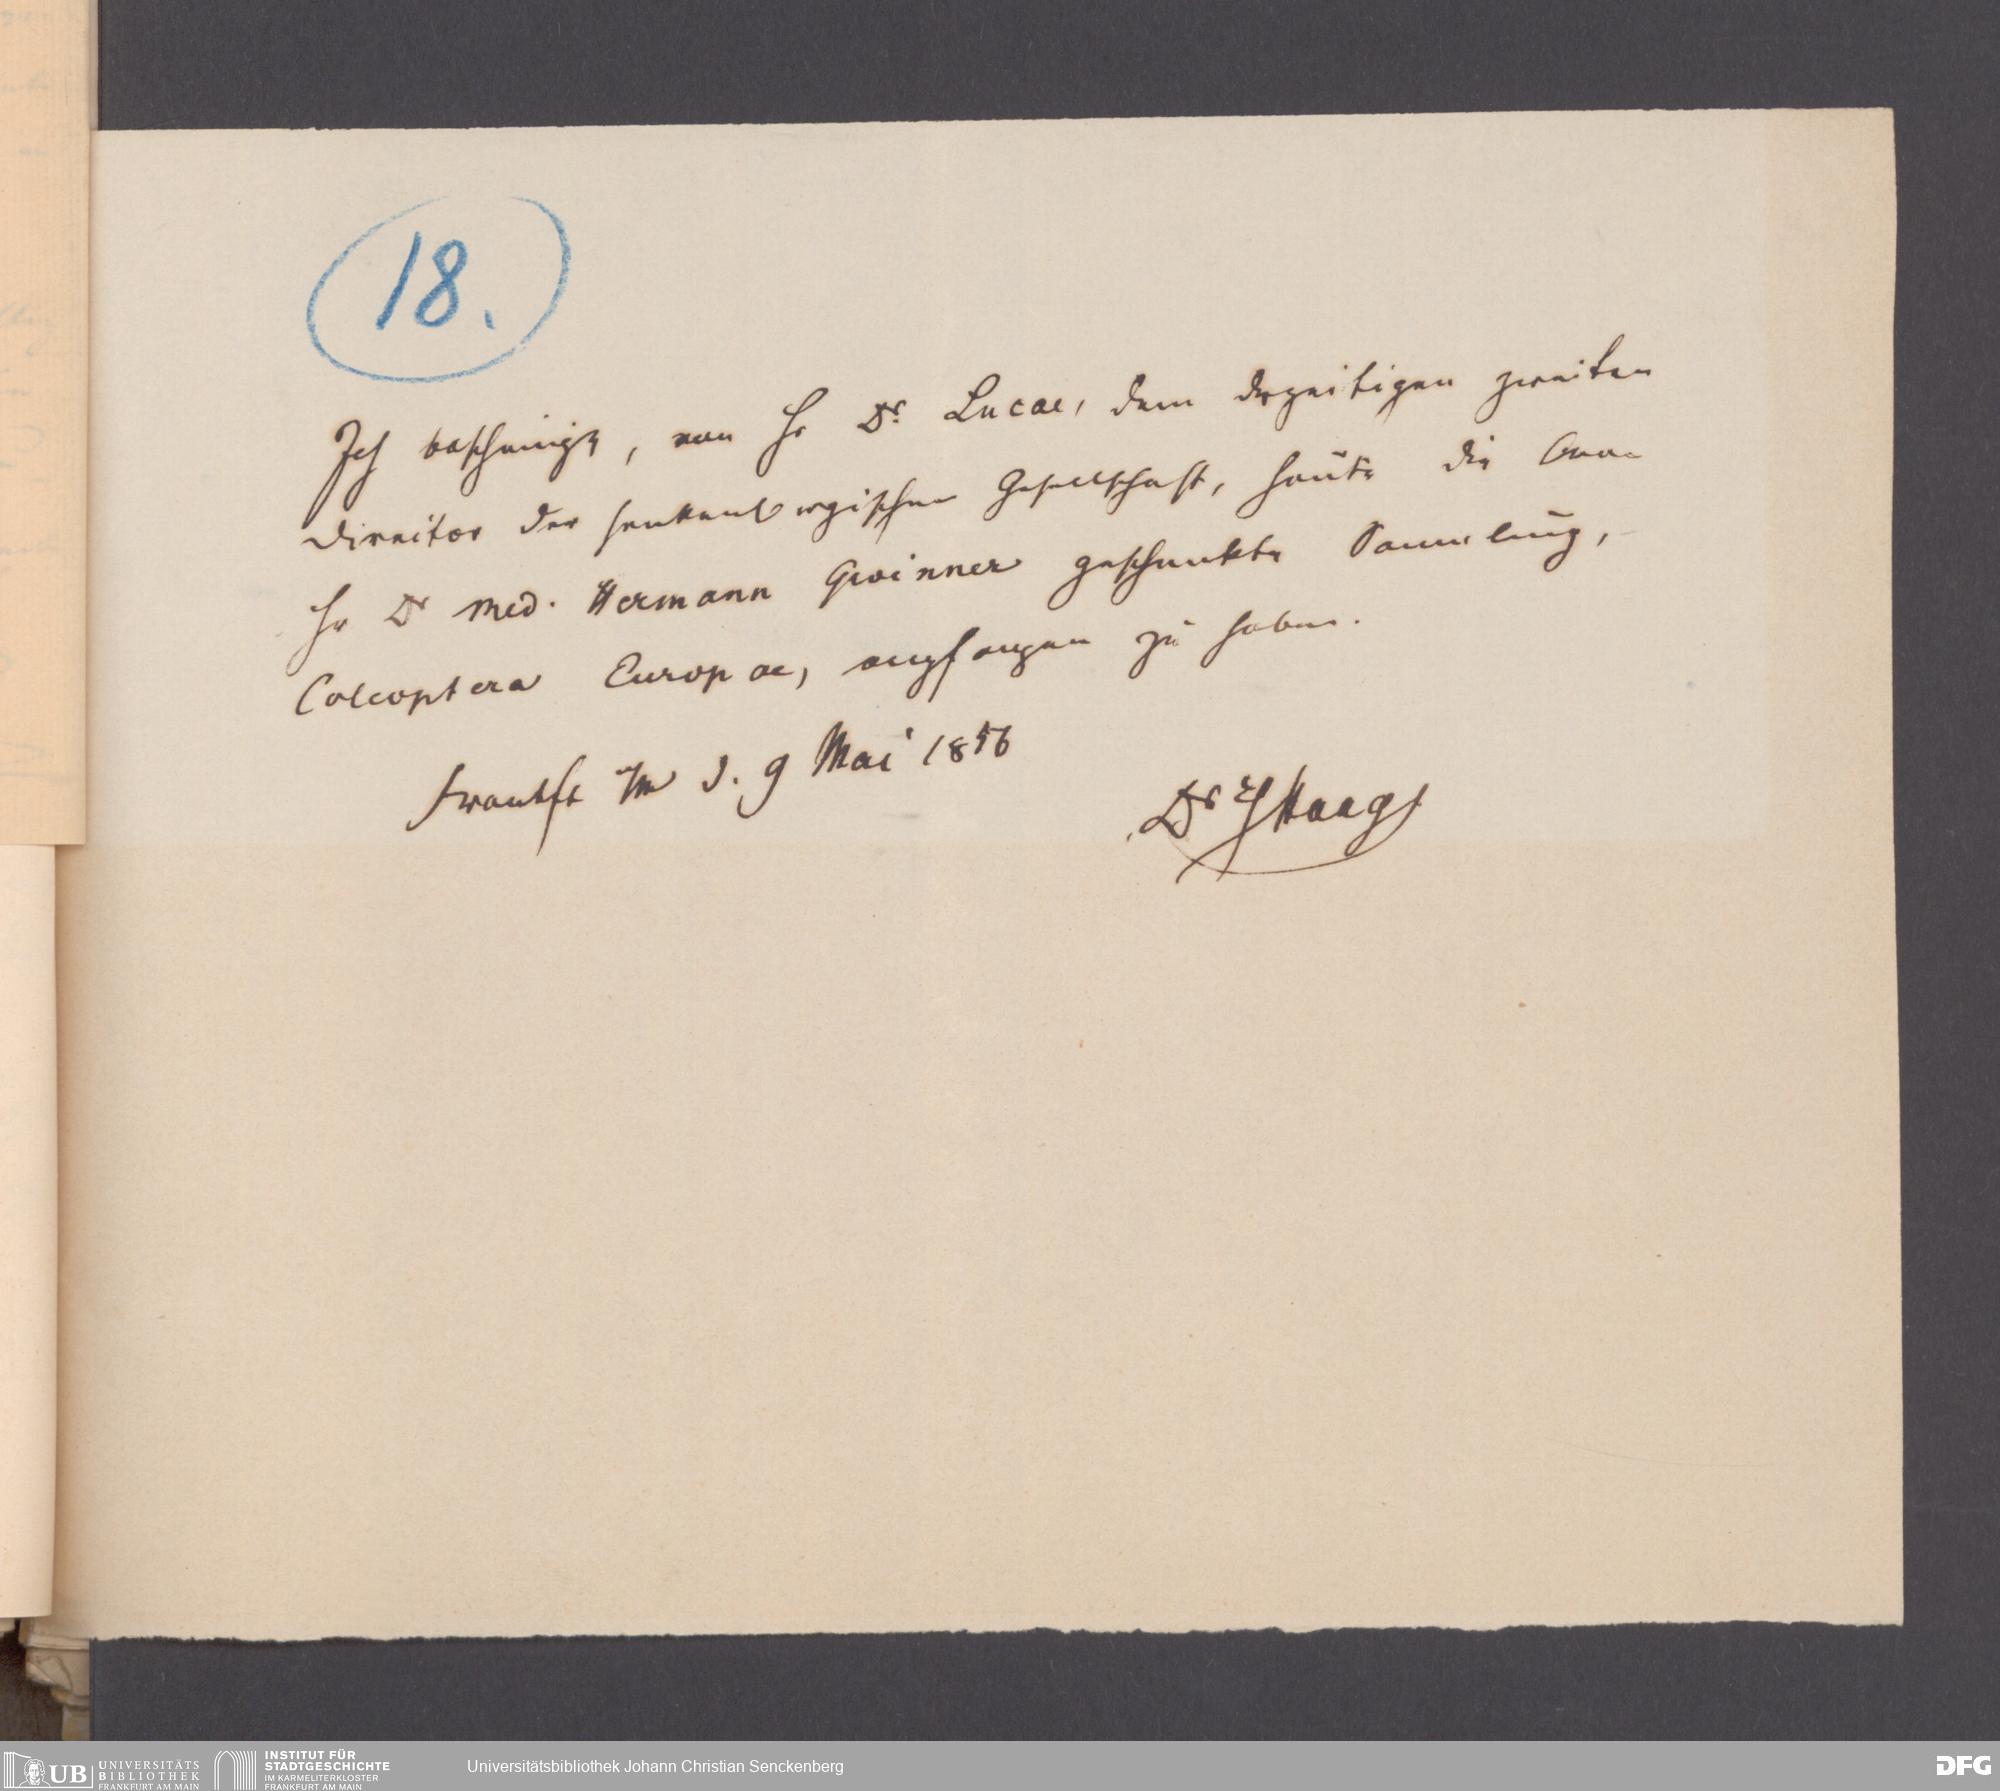 18.
Ich bescheinige, von Hr Dr. Lucae, dem derzeitigen zweiten
Direktor der senkenbergischen Gesellschaft, heute die von
Hr Dr med. Hermann Gwinner geschenkte Sammlung,
Coleoptera Europae, empfangen zu haben.
Frankft a/m d. 9 Mai 1856
Dr Haag
UB UNIVERSITÄTS
BIBLIOTHEK
FRANKFURT AM MAIN
INSTITUT FÜR
STADTGESCHICHTE
IM KARMELITERKLOSTER
FRANKFURT AM MAIN
Universitätsbibliothek Johann Christian Senckenberg
DFG